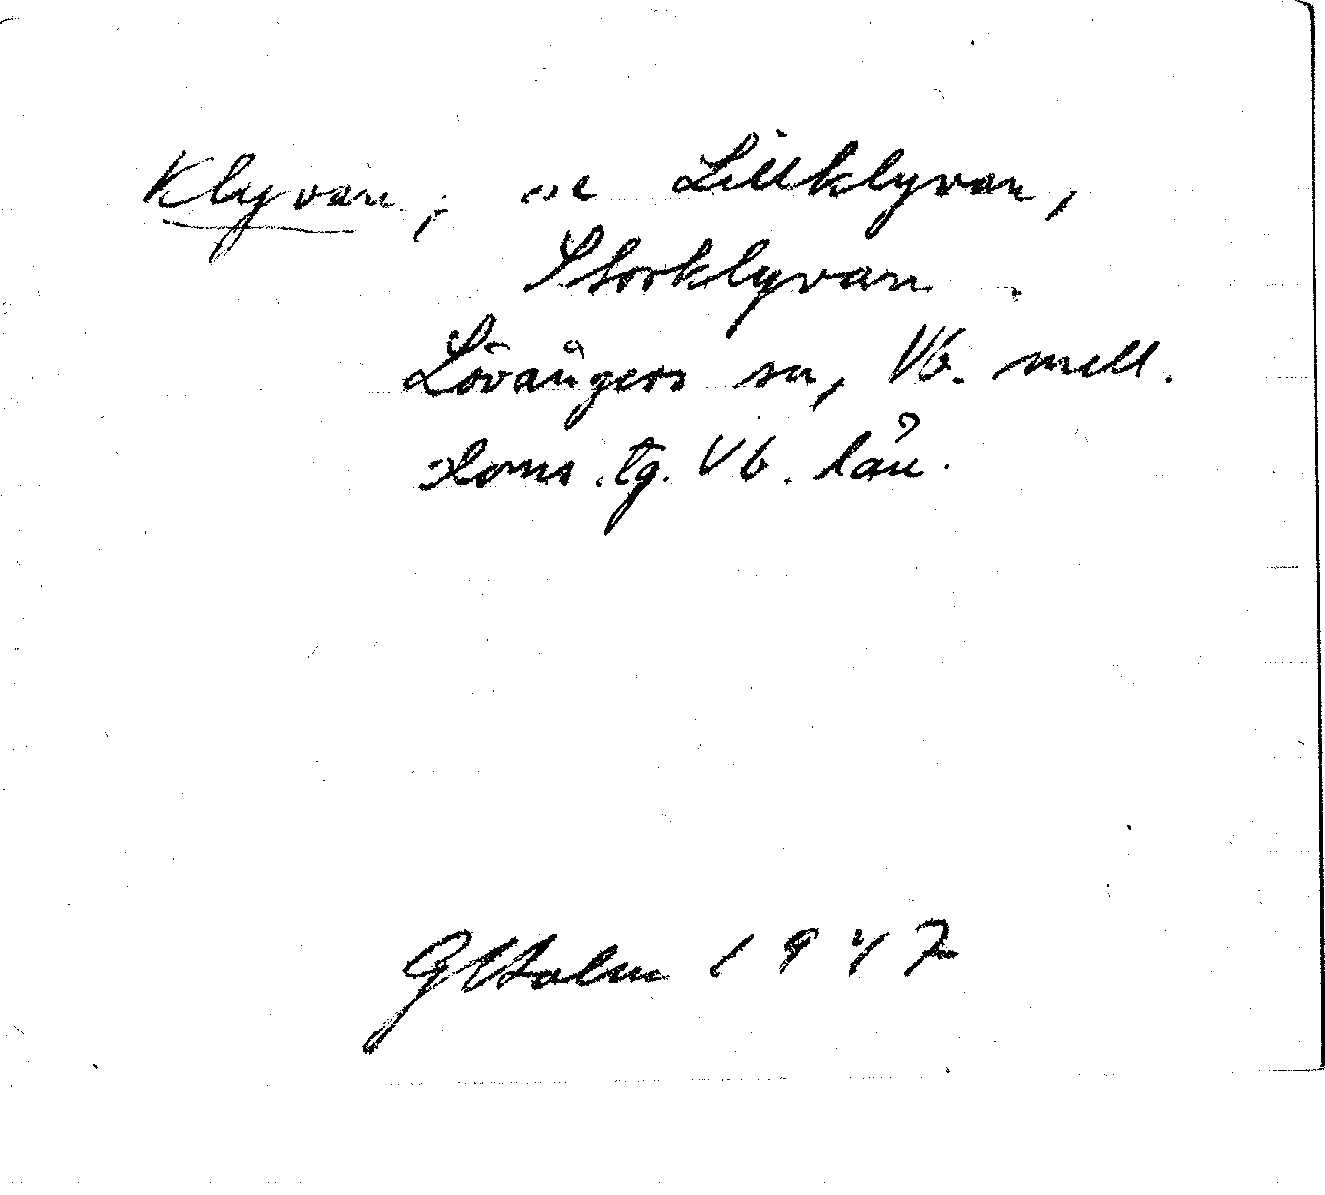 Klyvan, se Lillklyvan,
Storklyvan.
Lövångers sn, Vb. mell.
doms. tg. Vb. län.
G Holm 1947